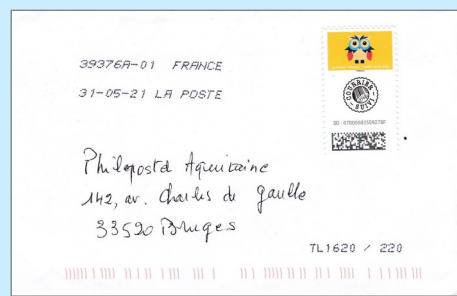 39376A-01 FRANCE
31-05-21 LA POSTE
COURRIER
SUIVI
Philaposta Aquitaine
142, av. Charles de gaulle
33520 Bruges
TL1620 / 220